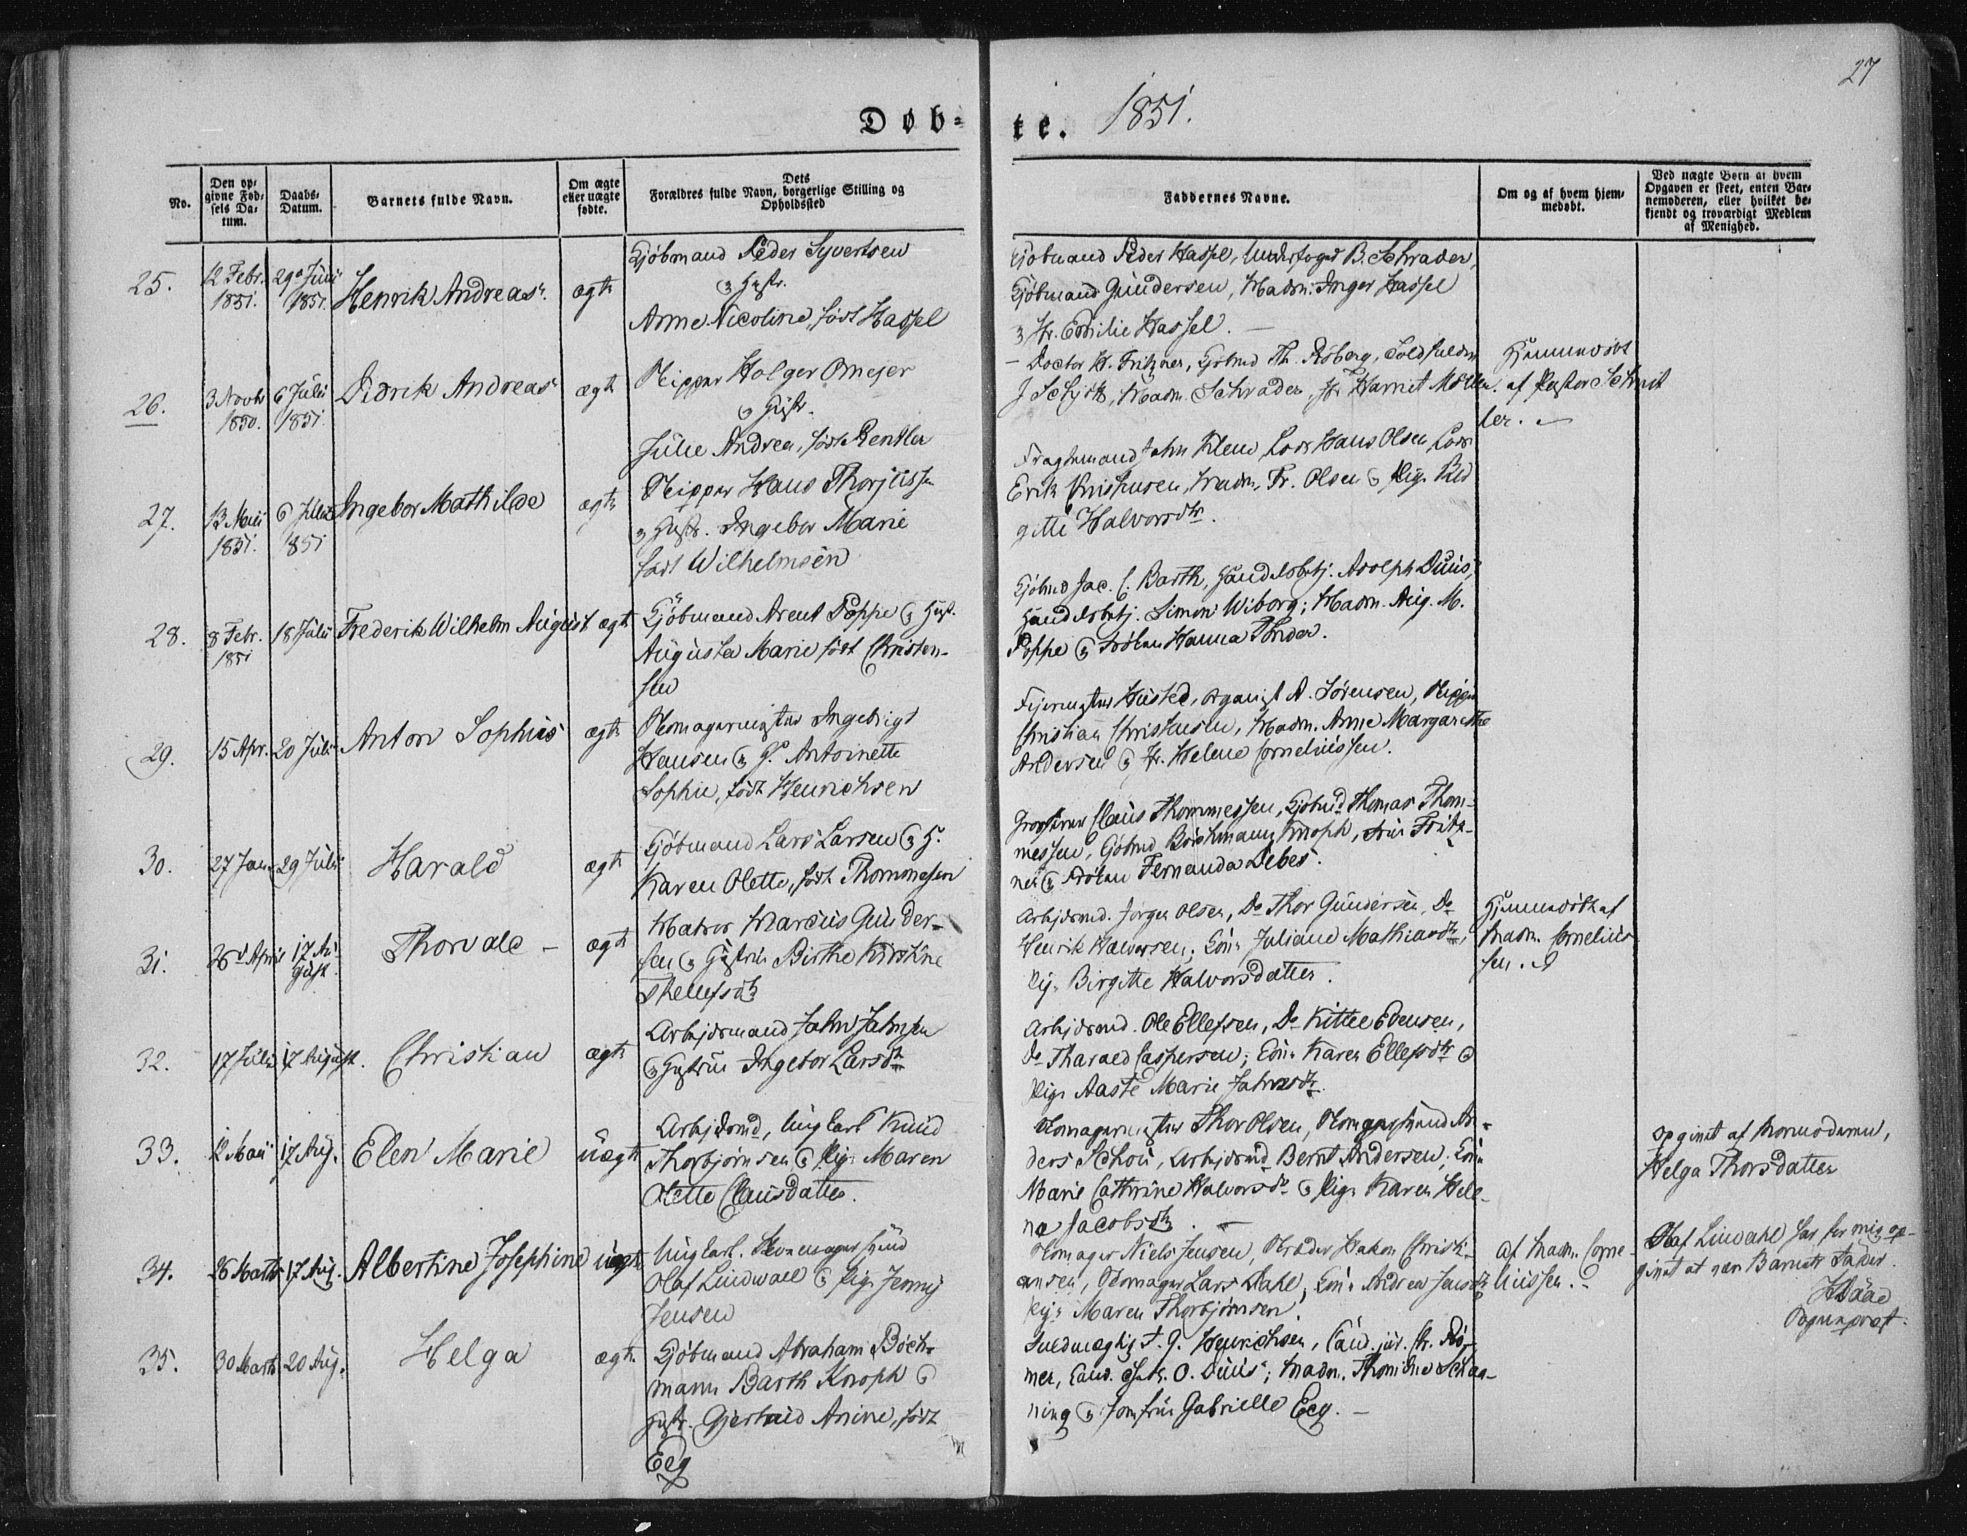 27
Døb-
te. 1851.
No.
Den op-
givne Fød-
sels Da-
tum.
Daabs-
Datum.
Barnets fulde Navn.
Om ægte
eller uægte
fødte.
Dets
Forældres fulde Navn, borgerlige Stilling og
Opholdssted
Faddernes Navne.
Om og af hvem hjem-
medøbt.
Ved uægte Børn at hvem
Opgaven er skeet, enten Bar-
nemoderen, eller hvilket be-
kjendt og troværdigt Medlem
af Menighed.
25.
12 Febr.
1851.
29de Juni
1851.
Henrik Andreas.
ægte
Kjøbmand Peder Syvertsen
& Hustr.
Anne Nicoline, født Hassel
Kjøbmand Peder Hassel, Underfoged B. Schrader,
Kjøbmand Gundersen, Madm. Inger Hassel
& Fr. Emilie Hassel. —
26.
3 Novbr
1850.
6 Juli
1851.
Didrik Andreas
ægte
Skipper Holger Omejer
& Hustr.
Julie Andrea, født Rentler
— Doctor H. Fritzner, Kjøbmd Th. Røberg, Toldfuldm
J Schjøtt, Madm. Schrader, Fr. Harriet Møller.
Hjemmedøbt
af Pastor Schmit
ler. —
27.
13 Maii
1851.
6 Juli
1851
Ingebor Mathilde
ægte
Skipper Hans Thorjussen
& Hustr. Ingebor Marie
født Wilhelmsen
Fragtemand John Klem, Lods Hans Olsen, Lods
Erik Christensen, Madm. Fr. Olsen & Pige Bir
gitte Halvorsdtr.
28.
8 Febr.
1851
18 Juli
Frederik Wilhelm August
ægte
Kjøbmand Arent Poppe & Hustr.
Augusta Marie født Christen-
sen
Kjøbmd Jac. C. Barth, Handelsbetj. Adolph Duus,
Handelsbetj. Simon Wiborg; Madm. Aug. M.
Poppe & Frøken Hanna Thider.
29.
15 Apr.
20 Juli
Anton Sophus
ægte
Skomagermester Ingebrigt
Hansen & H. Antoinette
Sophie, født Henrichsen
Feiermester Husted, Organist A. Sørensen, Skipper
Christian Christensen, Madm. Anne Margarethe
Andersen & Fr. Helene Corneliussen.
30.
27 Janu
29 Juli
Harald
ægte
Kjøbmand Lars Larsen & H.
Karen Olette, født Thommesen
Grosserer Claus Thommessen, Kjøbmd Thomas Thom-
messen, Kjøbmd Bøchmann Knoph, Frue Fritz-
ner & Frøken Fernanda Debes.
31.
26d April
17 Au-
gust.
Thorvald —
ægte
Matros Marcus Gunder-
sen & Hustrue Birthe Kirstine
Thellefsdtr
Arbejdsmd. Jørgen Olsen, Do Thor Gundersen, Do
Henrik Halvorsen; Kone Juliane Mathiasdtr,
Pige Birgitte Halvorsdatter.
Hjemmedøbt af
Madm. Cornelius-
sen.
32.
17 Juli
17 August.
Christian
ægte
Arbejdsmand John Johnsen
& Hustrue Ingebor Larsdtr
Arbejdsmd. Ole Ellefsen, Do Kittel Edensen,
Do Tharald Caspersen; Kone Karen Ellefsdtr &
Pige Aaste Marie Johnsdtr.
33.
12 Maii
17 Aug.
Elen Marie
uægte
Arbejdsmd, Ungkarl Knud
Thorbjørnsen & Pige Maren
Olette Clausdatter.
Skomagermester Thor Olsen, Skomagersvend An-
ders Schou, Arbejdsmd Bernt Andersen, Kone
Marie Cathrine Halvorsdtr & Pige Karen Hele-
ne Jacobsdtr. —
opgivet af Mormoderen,
Helga Thorsdatter
34.
26 Marts
17 Aug.
Albertine Josephine
uægte
Ungkarl, Skomagersvend
Olaf Lindwall & Pige Jenny
Jensen
Skomager Niels Jensen, Skræder Hakon Christi-
ansen, Skomager Lars Dahl, Kone Andrea Jensdtr
Pige Maren Thorbjørnsen
af Madm. Corne-
liussen. —
Olaf Lindahl har for mig op-
givet at være Barnets Fader.
Sognepræst.
35.
30 Marts
20 Aug.
Helga
ægte.
Kjøbmand Abraham Bøch-
mann Barth Knoph &
Hustr. Gjertrud Anine, født
Eeg
Fuldmægtig F. J. Henrichsen, Cand. jur. Chr. Rø-
mer, Cand. O. Duus; Madm. Thomine Schan-
ning & Jomfrue Gabrielle Eeg. —